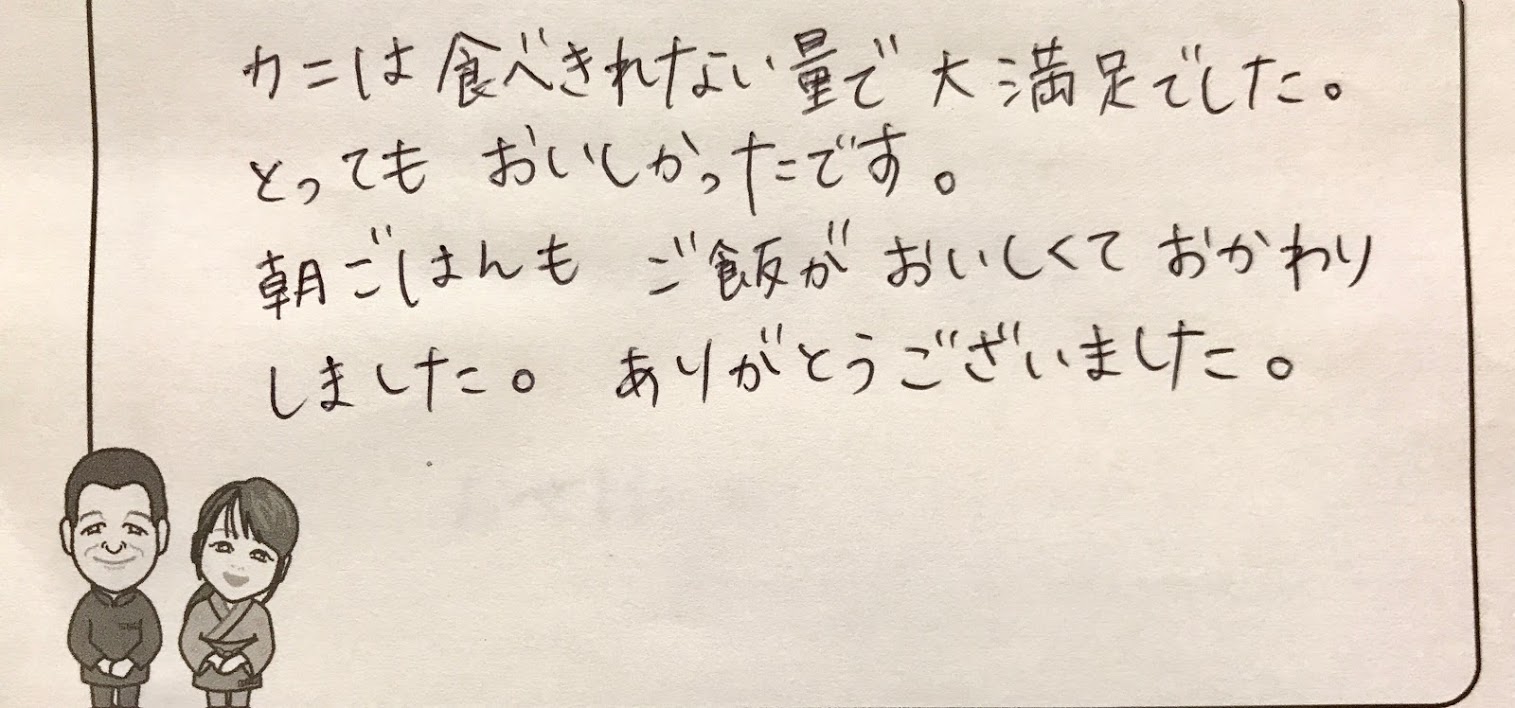 カニは食べきれない量で大満足でした。
とってもおいしかったです。
朝ごはんも ご飯がおいしくておかわり
しました。ありがとうございました。